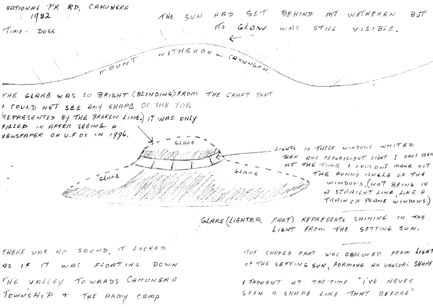 NATIONAL PK RD, CANUNGRA
1982
TIME - DUSK
THE SUN HAD SET BEHIND MT WITHEREN BUT
ITS GLOW WAS STILL VISIBLE.
MOUNT WITHEREN - CANUNGRA
THE GLARE WAS SO BRIGHT (BLINDING) FROM THE CRAFT THAT
I COULD NOT SEE ANY SHAPE OF THE TOP
REPRESENTED BY THE BROKEN LINE. IT WAS ONLY
FILLED IN AFTER SEEING A
NEWSPAPER ON U.F.O'S IN 1996.
GLARE
LIGHTS IN THESE WINDOWS WHITER
THAN ANY FLOURESCENT LIGHT I HAD SEEN
AT THE TIME. I COULDN'T MAKE OUT
THE FUNNY ANGLE OF THE
WINDOWS. (NOT BEING IN
A STRAIGHT LINE, LIKE A
TRAIN OR PLANE WINDOWS.)
GLARE
GLARE
GLARE (LIGHTER PART) REPRESENTS SHINING IN THE
LIGHT FROM THE SETTING SUN.
THERE WAS NO SOUND, IT LOOKED
AS IF IT WAS FLOATING DOWN
THE VALLEY TOWARDS CANUNGRA
TOWNSHIP & THE ARMY CAMP
THE SHADED PART WAS OBSCURED FROM LIGHT
OF THE SETTING SUN, FORMING AN UNUSUAL SHAPE
I THOUGHT AT THE TIME "I'VE NEVER
SEEN A SHAPE LIKE THAT BEFORE"